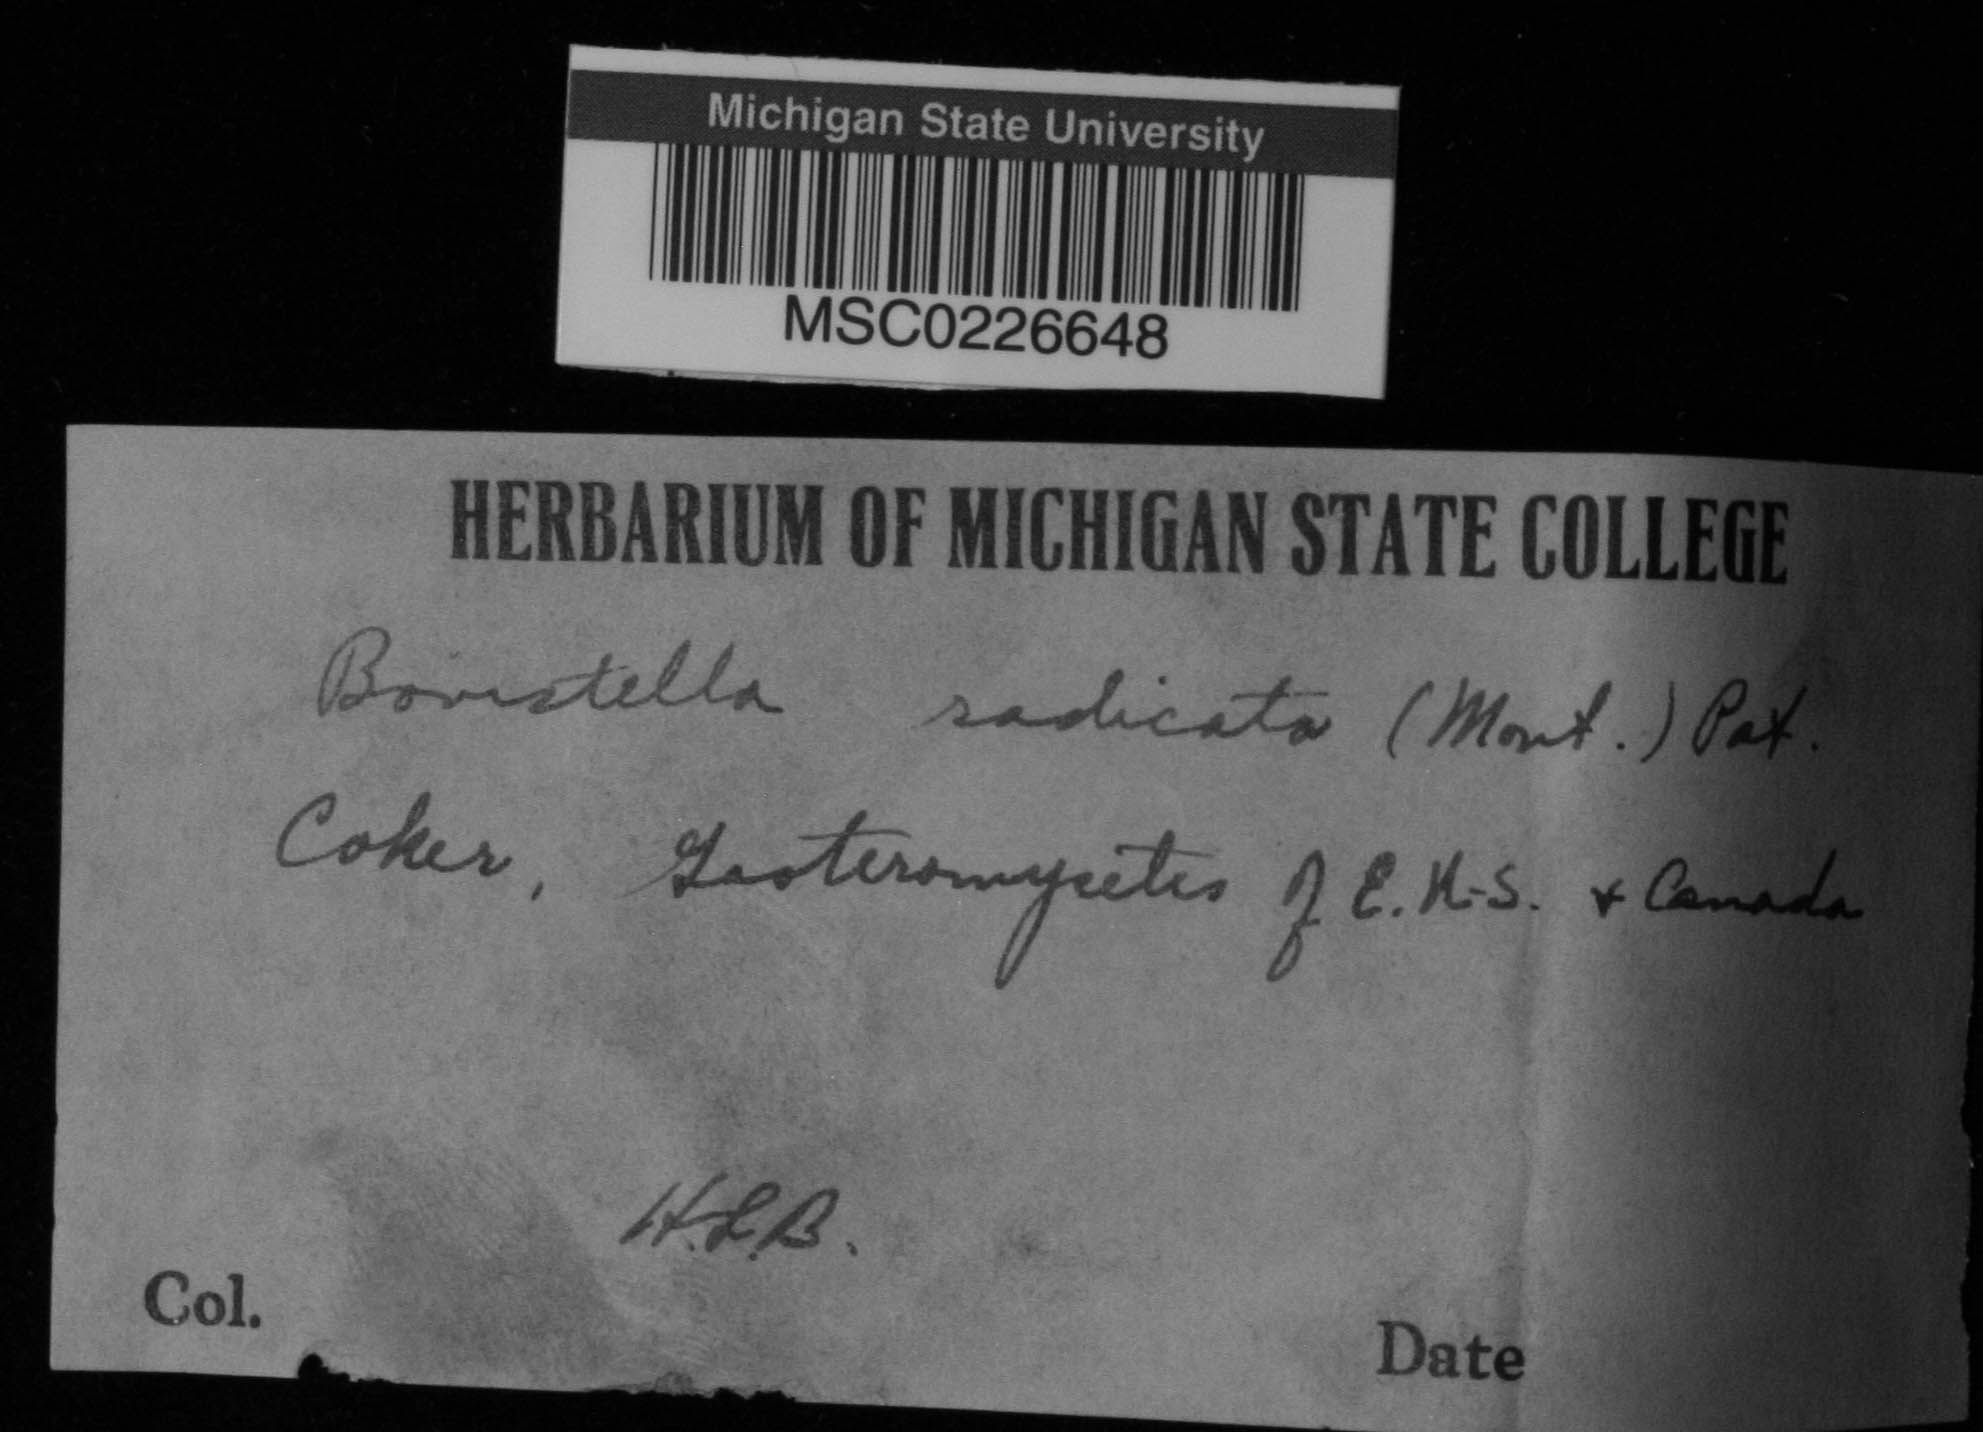 Michigan State University
MSC0226648
HERBARIUM OF MICHIGAN STATE COLLEGE
Bovistella radicata (Mont.) Pat.
Coker, Gasteromycetes of E. U.S. & Canada
H.L.B.
Col. Date